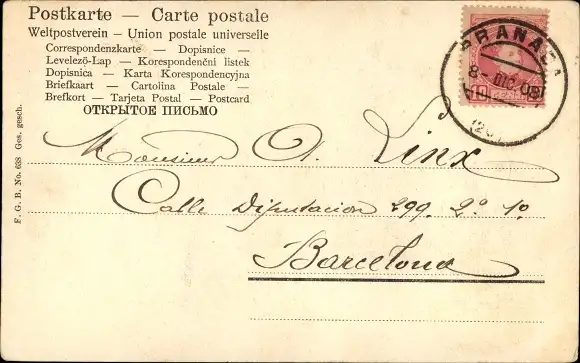 Postkarte — Carte postale
Weltpostverein — Union postale universelle
Correspondenzkarte — Dopisnice —
Levelező-Lap — Korespondenční listek
Dopisnica — Karta Korespondencyjna
Briefkaart — Cartolina Postale —
Brefkort — Tarjeta Postal — Postcard
ОТКРЫТОЕ ПИСЬМО
F. G. B. No. 638 Ges. gesch.
Monsieur A. Linx
Calle Diputacion 299. 2º 1º
Barcelona
10